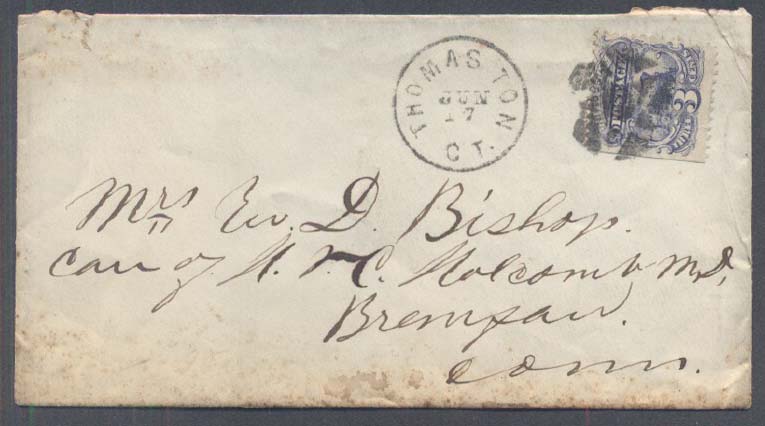 THOMASTON
JUN
17
CT.
3
Mrs D. Bishop.
care of H. C. Holcomb M.D,
Conn.